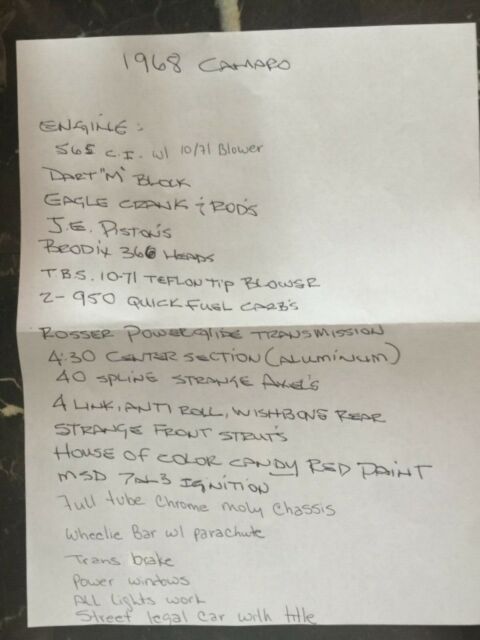 1968 CAMARO
ENGINE:
565 C.I. w/ 10/71 Blower
DART "M" BLOCK
EAGLE CRANK & RODS
J.E. PISTONS
BRODIX 366 HEADS
T.B.S. 10-71 TEFLON TIP BLOWER
2-950 QUICK FUEL CARB'S
ROSSER POWERGLIDE TRANSMISSION
4:30 CENTER SECTION (ALUMINUM)
40 SPLINE STRANGE AXEL'S
4 LINK, ANTI ROLL, WISHBONE REAR
STRANGE FRONT STRUT'S
HOUSE OF COLOR CANDY RED PAINT
MSD 7AL3 IGNITION
Full tube Chrome moly Chassis
Wheelie Bar w/ parachute
Trans brake
Power windows
ALL Lights work
Street legal Car with title